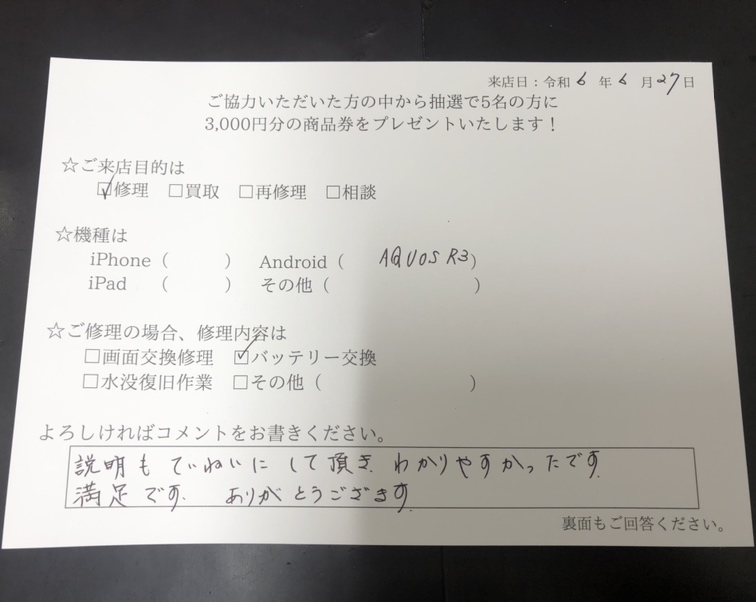 来店日：令和 6 年 6 月 27 日
ご協力いただいた方の中から抽選で5名の方に
3,000円分の商品券をプレゼントいたします！
☆ご来店目的は
☑修理 □買取 □再修理 □相談
☆機種は
iPhone（ ） Android（ AQUOS R3）
iPad （ ） その他（ ）
☆ご修理の場合、修理内容は
□画面交換修理 ☑バッテリー交換
□水没復旧作業 □その他（ ）
よろしければコメントをお書きください。
説明もていねいにして頂き わかりやすかったです
満足です. ありがとうござます.
裏面もご回答ください。